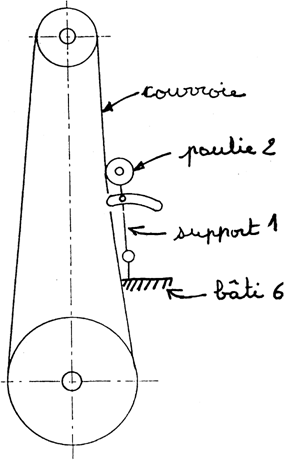 courroie
poulie 2
support 1
bâti 6